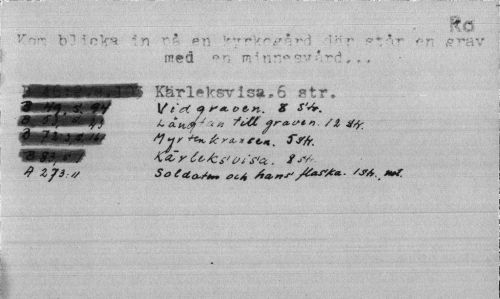 Ro
Kom blicka in på en kyrkogård där står en grav
med en minnesvård...
Kärleksvisa.6 str.
Vid graven. 8 str.
Längtan till graven. 12 str.
Myrtenkransen. 5 str.
B 83, s 1 Kärleksvisa. 8 str.
A 273:11 Soldaten och hans flaska. 1 str. not.